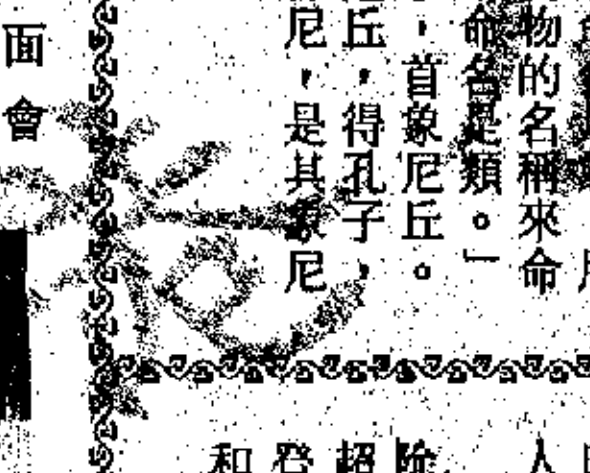 物的名稱來命
命名是類。」
，首象尼丘。
丘，得孔子，
尼，是其象尼
人
除
超
登
和
面會